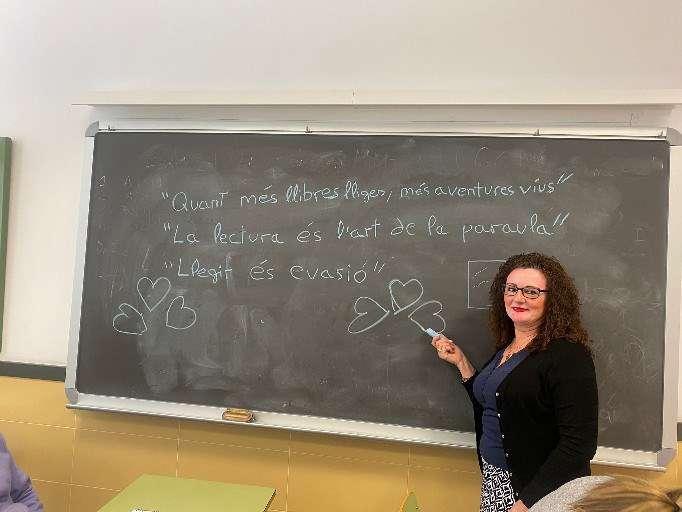 "Quant més llibres lliges, més aventures vius"
"La lectura és l'art de la paraula"
"Llegir és evasió"